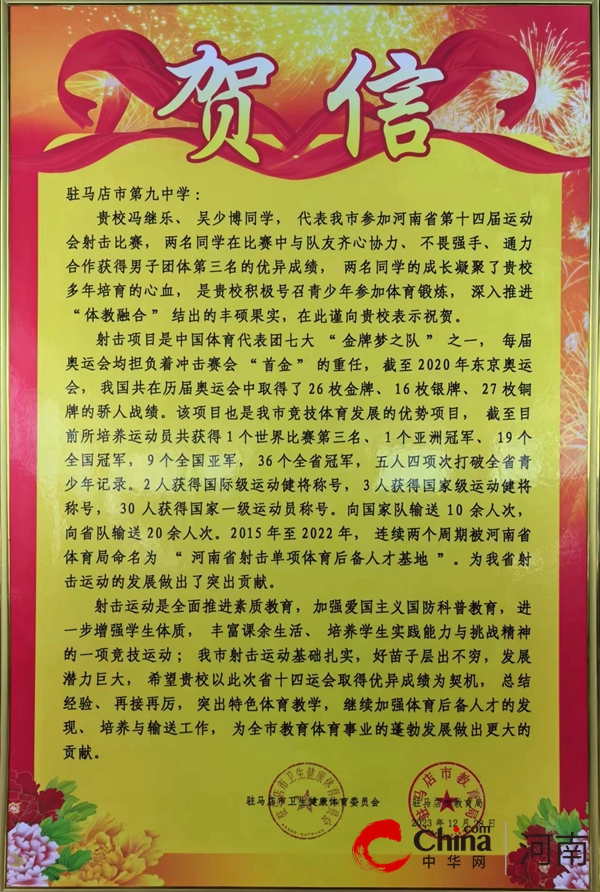 贺信
驻马店市第九中学：
贵校冯继乐、吴少博同学，代表我市参加河南省第十四届运动
会射击比赛，两名同学在比赛中与队友齐心协力、不畏强手、通力
合作获得男子团体第三名的优异成绩，两名同学的成长凝聚了贵校
多年培育的心血，是贵校积极号召青少年参加体育锻炼，深入推进
“体教融合”结出的丰硕果实，在此谨向贵校表示祝贺。
射击项目是中国体育代表团七大“金牌梦之队”之一，每届
奥运会均担负着冲击赛会“首金”的重任，截至2020年东京奥运
会，我国共在历届奥运会中取得了26枚金牌、16枚银牌、27枚铜
牌的骄人战绩。该项目也是我市竞技体育发展的优势项目，截至目
前所培养运动员共获得1个世界比赛第三名、1个亚洲冠军、19个
全国冠军，9个全国亚军，36个全省冠军，五人四项次打破全省青
少年记录。2人获得国际级运动健将称号，3人获得国家级运动健将
称号，30人获得国家一级运动员称号。向国家队输送10余人次，
向省队输送20余人次。2015年至2022年，连续两个周期被河南省
体育局命名为“河南省射击单项体育后备人才基地”。为我省射
击运动的发展做出了突出贡献。
射击运动是全面推进素质教育，加强爱国主义国防科普教育，进
一步增强学生体质，丰富课余生活、培养学生实践能力与挑战精神
的一项竞技运动；我市射击运动基础扎实，好苗子层出不穷，发展
潜力巨大，希望贵校以此次省十四运会取得优异成绩为契机，总结
经验、再接再厉，突出特色体育教学，继续加强体育后备人才的发
现、培养与输送工作，为全市教育体育事业的蓬勃发展做出更大的
贡献。
驻马店市卫生健康体育委员会
驻马店市教育局
2023年12月
China.com
中华网
河南